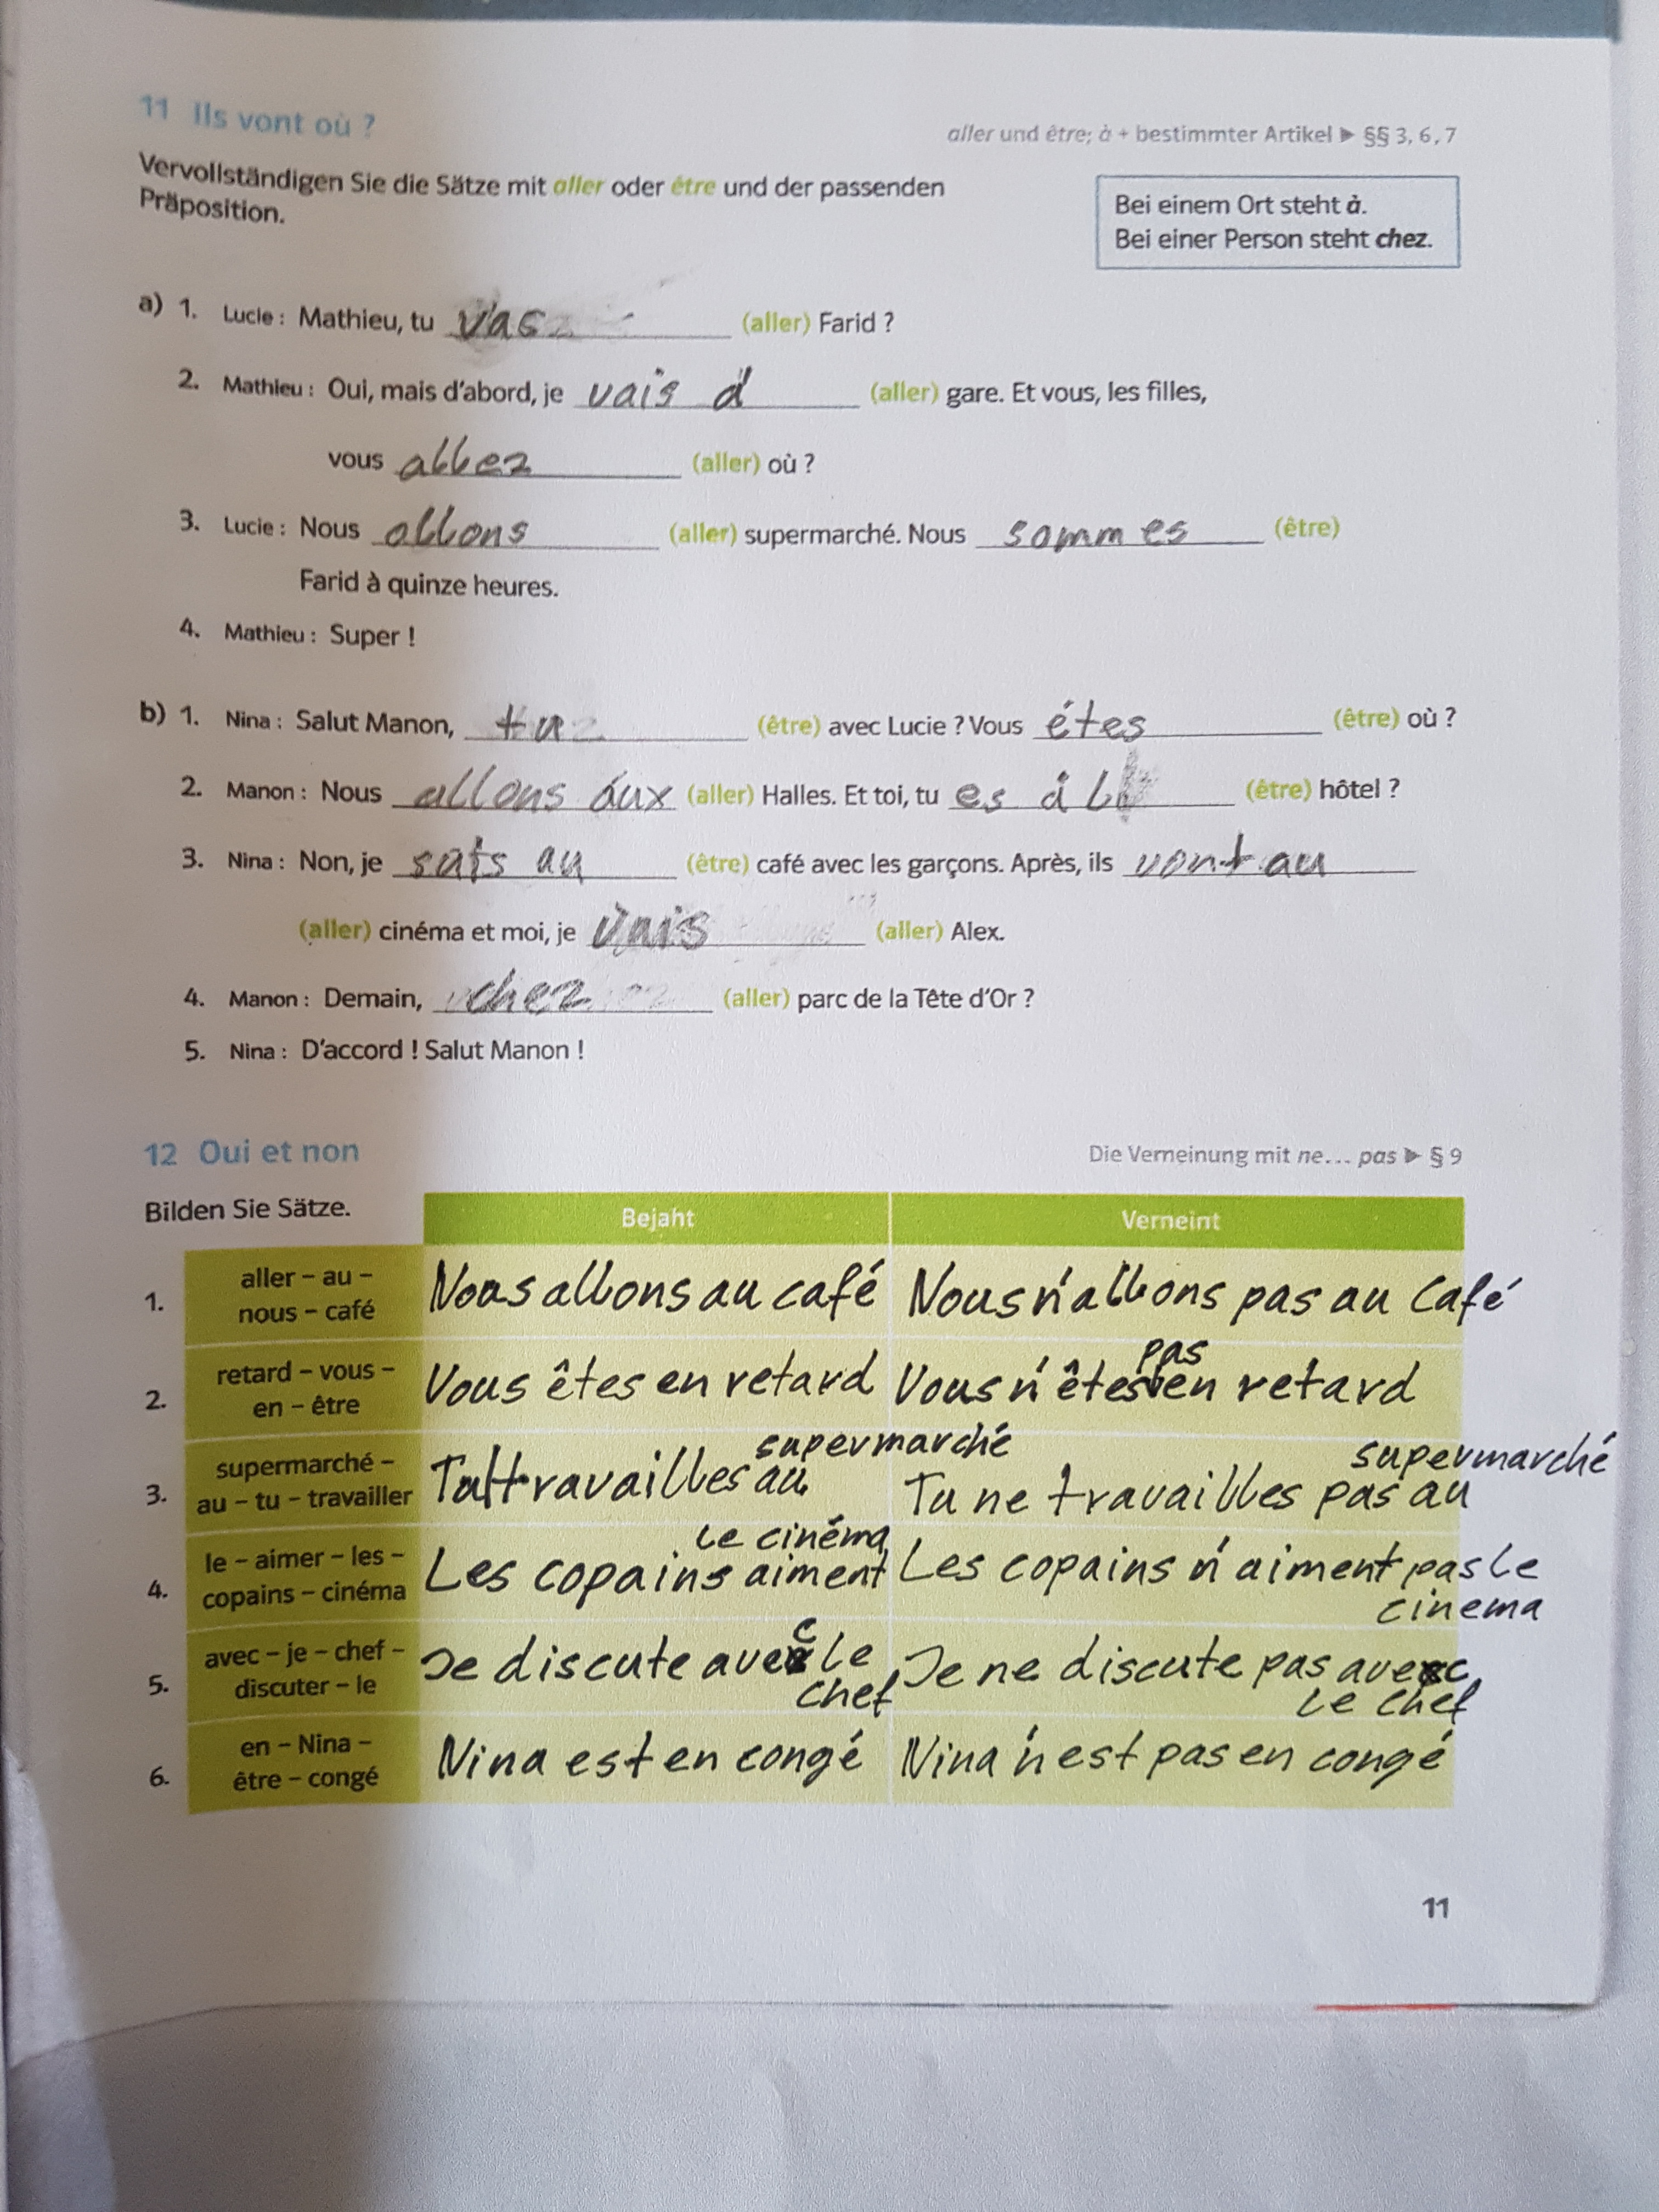 11 Ils vont où ?
aller und être; à + bestimmter Artikel ▶ §§ 3, 6, 7
Vervollständigen Sie die Sätze mit aller oder être und der passenden
Präposition.
Bei einem Ort steht à.
Bei einer Person steht chez.
a) 1. Lucie : Mathieu, tu vas (aller) Farid ?
2. Mathieu : Oui, mais d'abord, je vais à (aller) gare. Et vous, les filles,
vous allez (aller) où ?
3. Lucie : Nous allons (aller) supermarché. Nous sommes (être)
Farid à quinze heures.
4. Mathieu : Super !
b) 1. Nina : Salut Manon, tu (être) avec Lucie ? Vous étes (être) où ?
2. Manon : Nous allons áux (aller) Halles. Et toi, tu es á (être) hôtel ?
3. Nina : Non, je suis au (être) café avec les garçons. Après, ils vont au
(aller) cinéma et moi, je vais (aller) Alex.
4. Manon : Demain, chez (aller) parc de la Tête d'Or ?
5. Nina : D'accord ! Salut Manon !
12 Oui et non
Die Verneinung mit ne... pas ▶ § 9
Bilden Sie Sätze.
Bejaht
Verneint
1. aller – au –
nous – café
Nous allons au café
Nous n'allons pas au Café
2. retard – vous –
en – être
Vous êtes en retard
Vous n'êtes pas en retard
3. supermarché –
au – tu – travailler
Tu travailles au supermarché
Tu ne travailles pas au supermarché
4. le – aimer – les –
copains – cinéma
Les copains aiment le cinéma
Les copains n'aiment pas le
cinema
5. avec – je – chef –
discuter – le
Je discute avec le
chef
Je ne discute pas avec
le chef
6. en – Nina –
être – congé
Nina est en congé
Nina n'est pas en congé
11